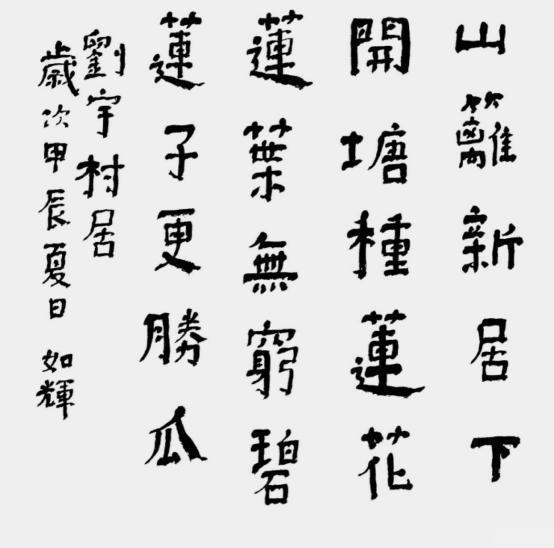 山籬新居下
開塘種蓮花
蓮葉無窮碧
蓮子更勝瓜
劉宇村居
歲次甲辰夏日 如輝